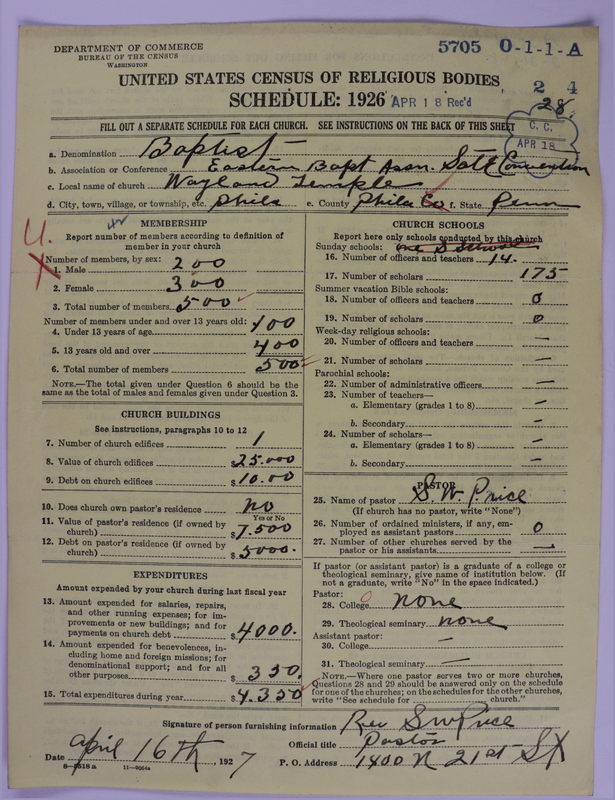 DEPARTMENT OF COMMERCE
BUREAU OF THE CENSUS
WASHINGTON
5705 O-1-1-A
UNITED STATES CENSUS OF RELIGIOUS BODIES
2 4
SCHEDULE: 1926 APR 18 Rec'd
28
FILL OUT A SEPARATE SCHEDULE FOR EACH CHURCH. SEE INSTRUCTIONS ON THE BACK OF THIS SHEET
C. C.
APR 18
a. Denomination Baptist
b. Association or Conference Eastern Bapt Assn. Convention
c. Local name of church Wayland Temple
d. City, town, village, or township, etc. Phila e. County Phila Co f. State Penn
MEMBERSHIP
Report number of members according to definition of
member in your church
Number of members, by sex:
1. Male 200
2. Female 300
3. Total number of members 500
Number of members under and over 13 years old:
4. Under 13 years of age 100
5. 13 years old and over 400
6. Total number of members 500
NOTE.—The total given under Question 6 should be the
same as the total of males and females given under Question 3.
CHURCH BUILDINGS
See instructions, paragraphs 10 to 12
7. Number of church edifices 1
8. Value of church edifices $25.000
9. Debt on church edifices $10.00
10. Does church own pastor's residence no
Yes or No
11. Value of pastor's residence (if owned by
church) $7.500
12. Debt on pastor's residence (if owned by
church) $5000.
EXPENDITURES
Amount expended by your church during last fiscal year
13. Amount expended for salaries, repairs,
and other running expenses; for im-
provements or new buildings; and for
payments on church debt $4000.
14. Amount expended for benevolences, in-
cluding home and foreign missions; for
denominational support; and for all
other purposes $350.
15. Total expenditures during year $4.350
CHURCH SCHOOLS
Report here only schools conducted by this church
Sunday schools:
16. Number of officers and teachers 14.
17. Number of scholars 175
Summer vacation Bible schools:
18. Number of officers and teachers 0
19. Number of scholars 0
Week-day religious schools:
20. Number of officers and teachers —
21. Number of scholars —
Parochial schools:
22. Number of administrative officers —
23. Number of teachers—
a. Elementary (grades 1 to 8) —
b. Secondary —
24. Number of scholars—
a. Elementary (grades 1 to 8) —
b. Secondary —
PASTOR
25. Name of pastor S. W. Price
(If church has no pastor, write "None")
26. Number of ordained ministers, if any, em-
ployed as assistant pastors 0
27. Number of other churches served by the
pastor or his assistants —
If pastor (or assistant pastor) is a graduate of a college or
theological seminary, give name of institution below. (If
not a graduate, write "No" in the space indicated.)
Pastor:
28. College none
29. Theological seminary none
Assistant pastor:
30. College —
31. Theological seminary —
NOTE.—Where one pastor serves two or more churches,
Questions 28 and 29 should be answered only on the schedule
for one of the churches; on the schedules for the other churches,
write "See schedule for church."
Signature of person furnishing information Rev S W Price
Official title Pastor
Date April 16th, 1927 P. O. Address 1400 N 21st St
8—5518a 11—9064a